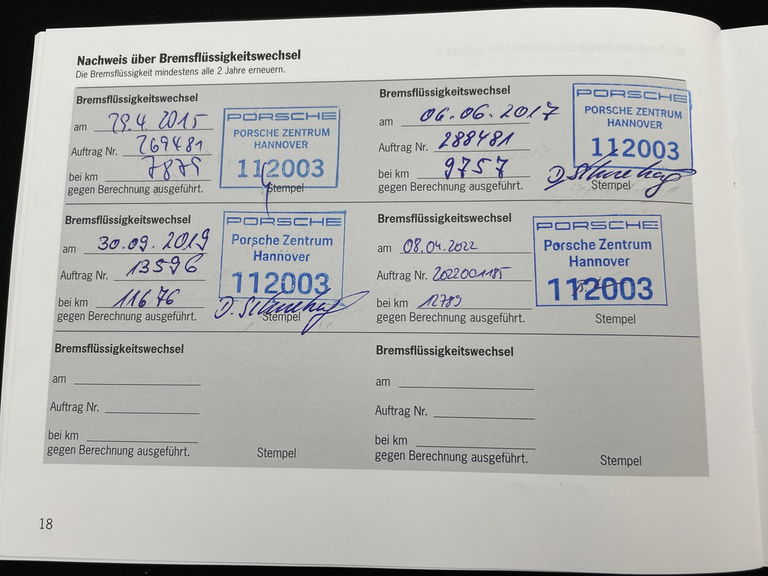 Nachweis über Bremsflüssigkeitswechsel
Die Bremsflüssigkeit mindestens alle 2 Jahre erneuern.
Bremsflüssigkeitswechsel
am 29.4.2015
Auftrag Nr. 269481
bei km 7879
gegen Berechnung ausgeführt.
PORSCHE
PORSCHE ZENTRUM
HANNOVER
112003
Stempel
Bremsflüssigkeitswechsel
am 06.06.2017
Auftrag Nr. 288481
bei km 9757
gegen Berechnung ausgeführt.
PORSCHE
PORSCHE ZENTRUM
HANNOVER
112003
Stempel
Bremsflüssigkeitswechsel
am 30.09.2019
Auftrag Nr. 13596
bei km 11676
gegen Berechnung ausgeführt.
PORSCHE
Porsche Zentrum
Hannover
112003
Stempel
Bremsflüssigkeitswechsel
am 08.04.2022
Auftrag Nr. 2022001185
bei km 12789
gegen Berechnung ausgeführt.
PORSCHE
Porsche Zentrum
Hannover
112003
Stempel
Bremsflüssigkeitswechsel
am
Auftrag Nr.
bei km
gegen Berechnung ausgeführt.
Stempel
Bremsflüssigkeitswechsel
am
Auftrag Nr.
bei km
gegen Berechnung ausgeführt.
Stempel
18